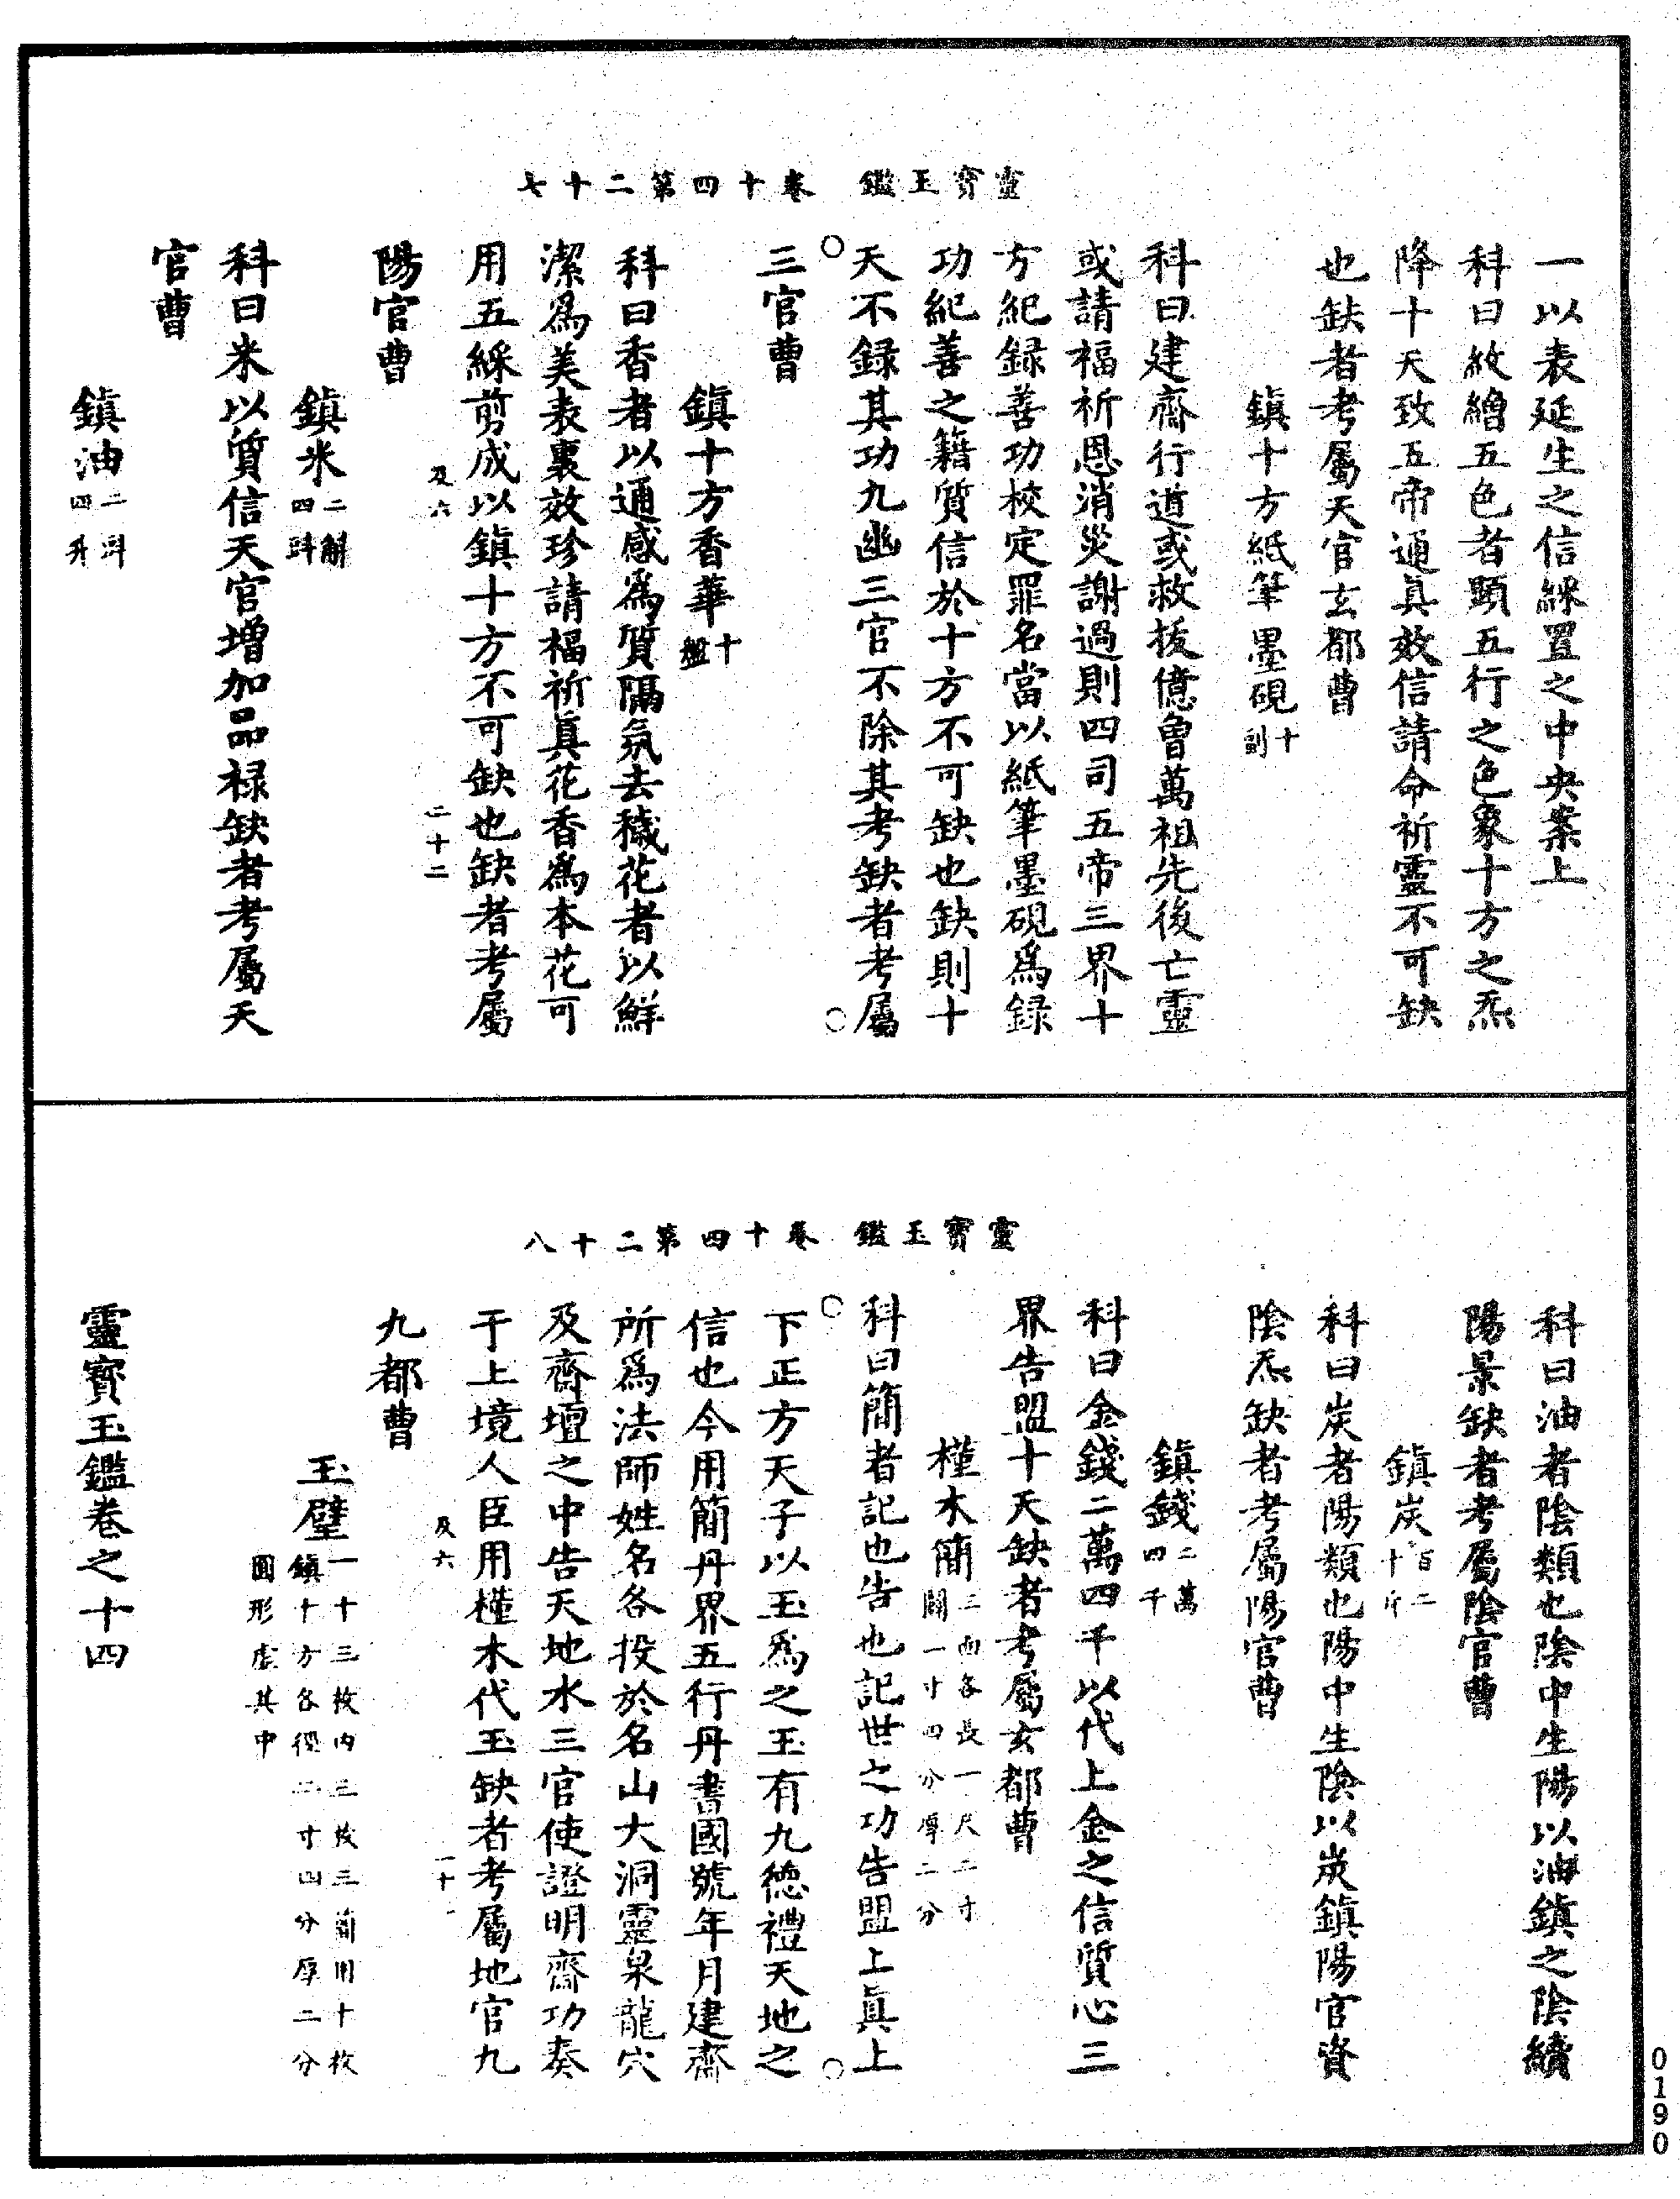 靈寳玉鑑 卷十四第二十七
一以表延生之信綵置之中央案上
科曰紋繒五色者顯五行之色象十方之炁
降十天致五帝通真效信請命祈靈不可缺
也缺者考屬天官玄都曹
鎮十方紙筆墨硯十副
科曰建齋行道或救拔億曾萬祖先後亡靈
或請福祈恩消災謝過則四司五帝三界十
方紀録善功校定罪名當以紙筆墨硯爲録
功紀善之籍質信於十方不可缺也缺則十
天不録其功九幽三官不除其考缺者考屬
三官曹
鎮十方香華十盤
科曰香者以通感爲質隔氛去穢花者以鮮
潔爲美表裏效珍請福祈真花香爲本花可
用五綵剪成以鎮十方不可缺也缺者考屬
及六 二十二
陽官曹
鎮米二斛四㪷
科曰米以質信天官增加品禄缺者考屬天
官曹
鎮油二㪷四升
靈寳玉鑑 卷十四第二十八
科曰油者陰類也陰中生陽以油鎮之陰續
陽景缺者考屬陰官曹
鎮炭百二十斤
科曰炭者陽類也陽中生陰以炭鎮陽官資
陰炁缺者考屬陽官曹
鎮錢二萬四千
科曰金錢二萬四千以代上金之信質心三
界告盟十天缺者考屬玄都曹
槿木簡三面各長一尺二寸闊一寸四分厚二分
科曰簡者記也告也記世之功告盟上真上
下正方天子以玉爲之玉有九德禮天地之
信也今用簡丹界五行丹書國號年月建齋
所爲法師姓名各投於名山大洞靈泉龍穴
及齋壇之中告天地水三官使證明齋功奏
于上境人臣用槿木代玉缺者考屬地官九
及六
九都曹
玉璧一十三枚内三枚三簡用十枚鎮十方各徑二寸四分厚二分圓形虛其中
靈寳玉鑑卷之十四
0190